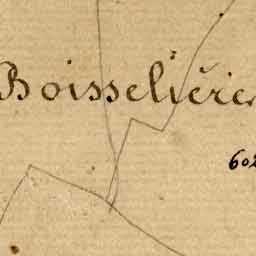 Boisselière
602